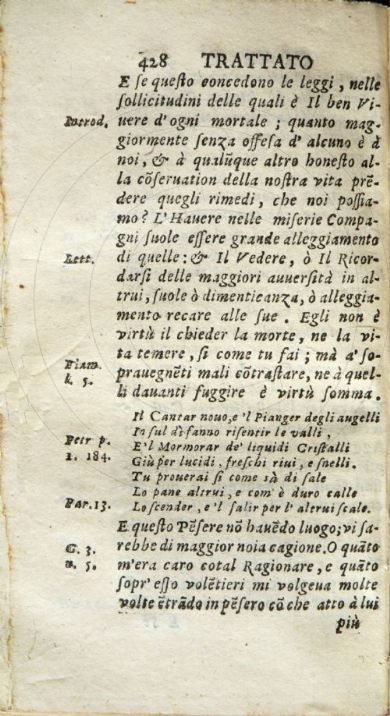 428 TRATTATO
E se questo concedono le leggi, nelle
sollicitudini delle quali è Il ben Vi-
Introd. uere d'ogni mortale; quanto mag-
giormente senza offesa d'alcuno è à
noi, & à qualũque altro honesto al-
la cõseruation della nostra vita prē-
dere quegli rimedi, che noi possia-
mo? L'Hauere nelle miserie Compa-
gni suole essere grande alleggiamento
Lett. di quelle: & Il Vedere, ò Il Ricor-
darsi delle maggiori auuersità in al-
trui, suole ò dimenticanza, ò alleggia-
mento recare alle sue. Egli non è
virtù il chieder la morte, ne la vi-
ta temere, si come tu fai; mà a' so-
Fiam. prauegnēti mali cõtrastare, ne à quel-
l. 5. li dauanti fuggire è virtù somma.
Il Cantar nouo, e'l Pianger degli augelli
In sul dì fanno risentir le valli,
Petr p. E'l Mormorar de' liquidi Cristalli
1. 184. Giù per lucidi, freschi riui, e snelli.
Tu prouerai si come sà di sale
Lo pane altrui, e com' è duro calle
Par. 13. Lo scender, e'l salir per l'altrui scale.
E questo Pēsere nõ hauēdo luogo; vi sa-
G. 3. rebbe di maggior noia cagione. O quãto
n. 5. m'era caro cotal Ragionare, e quãto
sopr' esso volētieri mi volgeua molte
volte ētrãdo in pēsero cõ che atto à lui
più